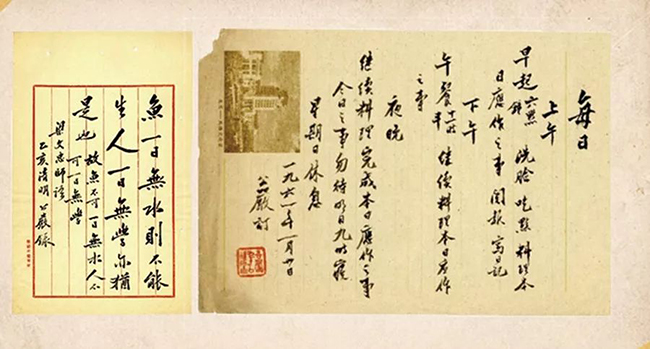 每日
上午
早起六點鐘 洗臉 吃點 料理本
日應作之事 閱報 寫日記
下午
午餐十二時半 繼續料理本日應作
之事
夜晚
繼續料理完成本日應作之事
今日之事勿待明日九時寢
星期日休息
一九六一年一月廿日
公嚴訂
魚一日無水則不能
生人一日無學亦猶
是也 故魚不可一日無水人不
可一日無學
梁文忠師語
乙亥清明公嚴錄